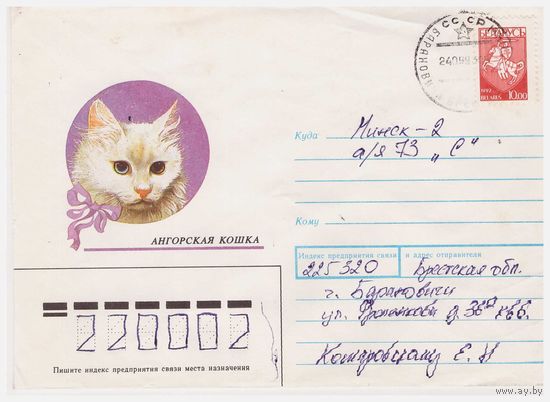 СССР
БАРАНОВИ
240993
БЕЛАРУСЬ
1992
BELARUS 10.00
Куда Минск-2
а/я 73 „С"
Кому
АНГОРСКАЯ КОШКА
Индекс предприятия связи и адрес отправителя
225320 Брестская обл.
г. Барановичи
ул. д. 36 кв 6.
220002
Е. И
Пишите индекс предприятия связи места назначения
www.ay.by